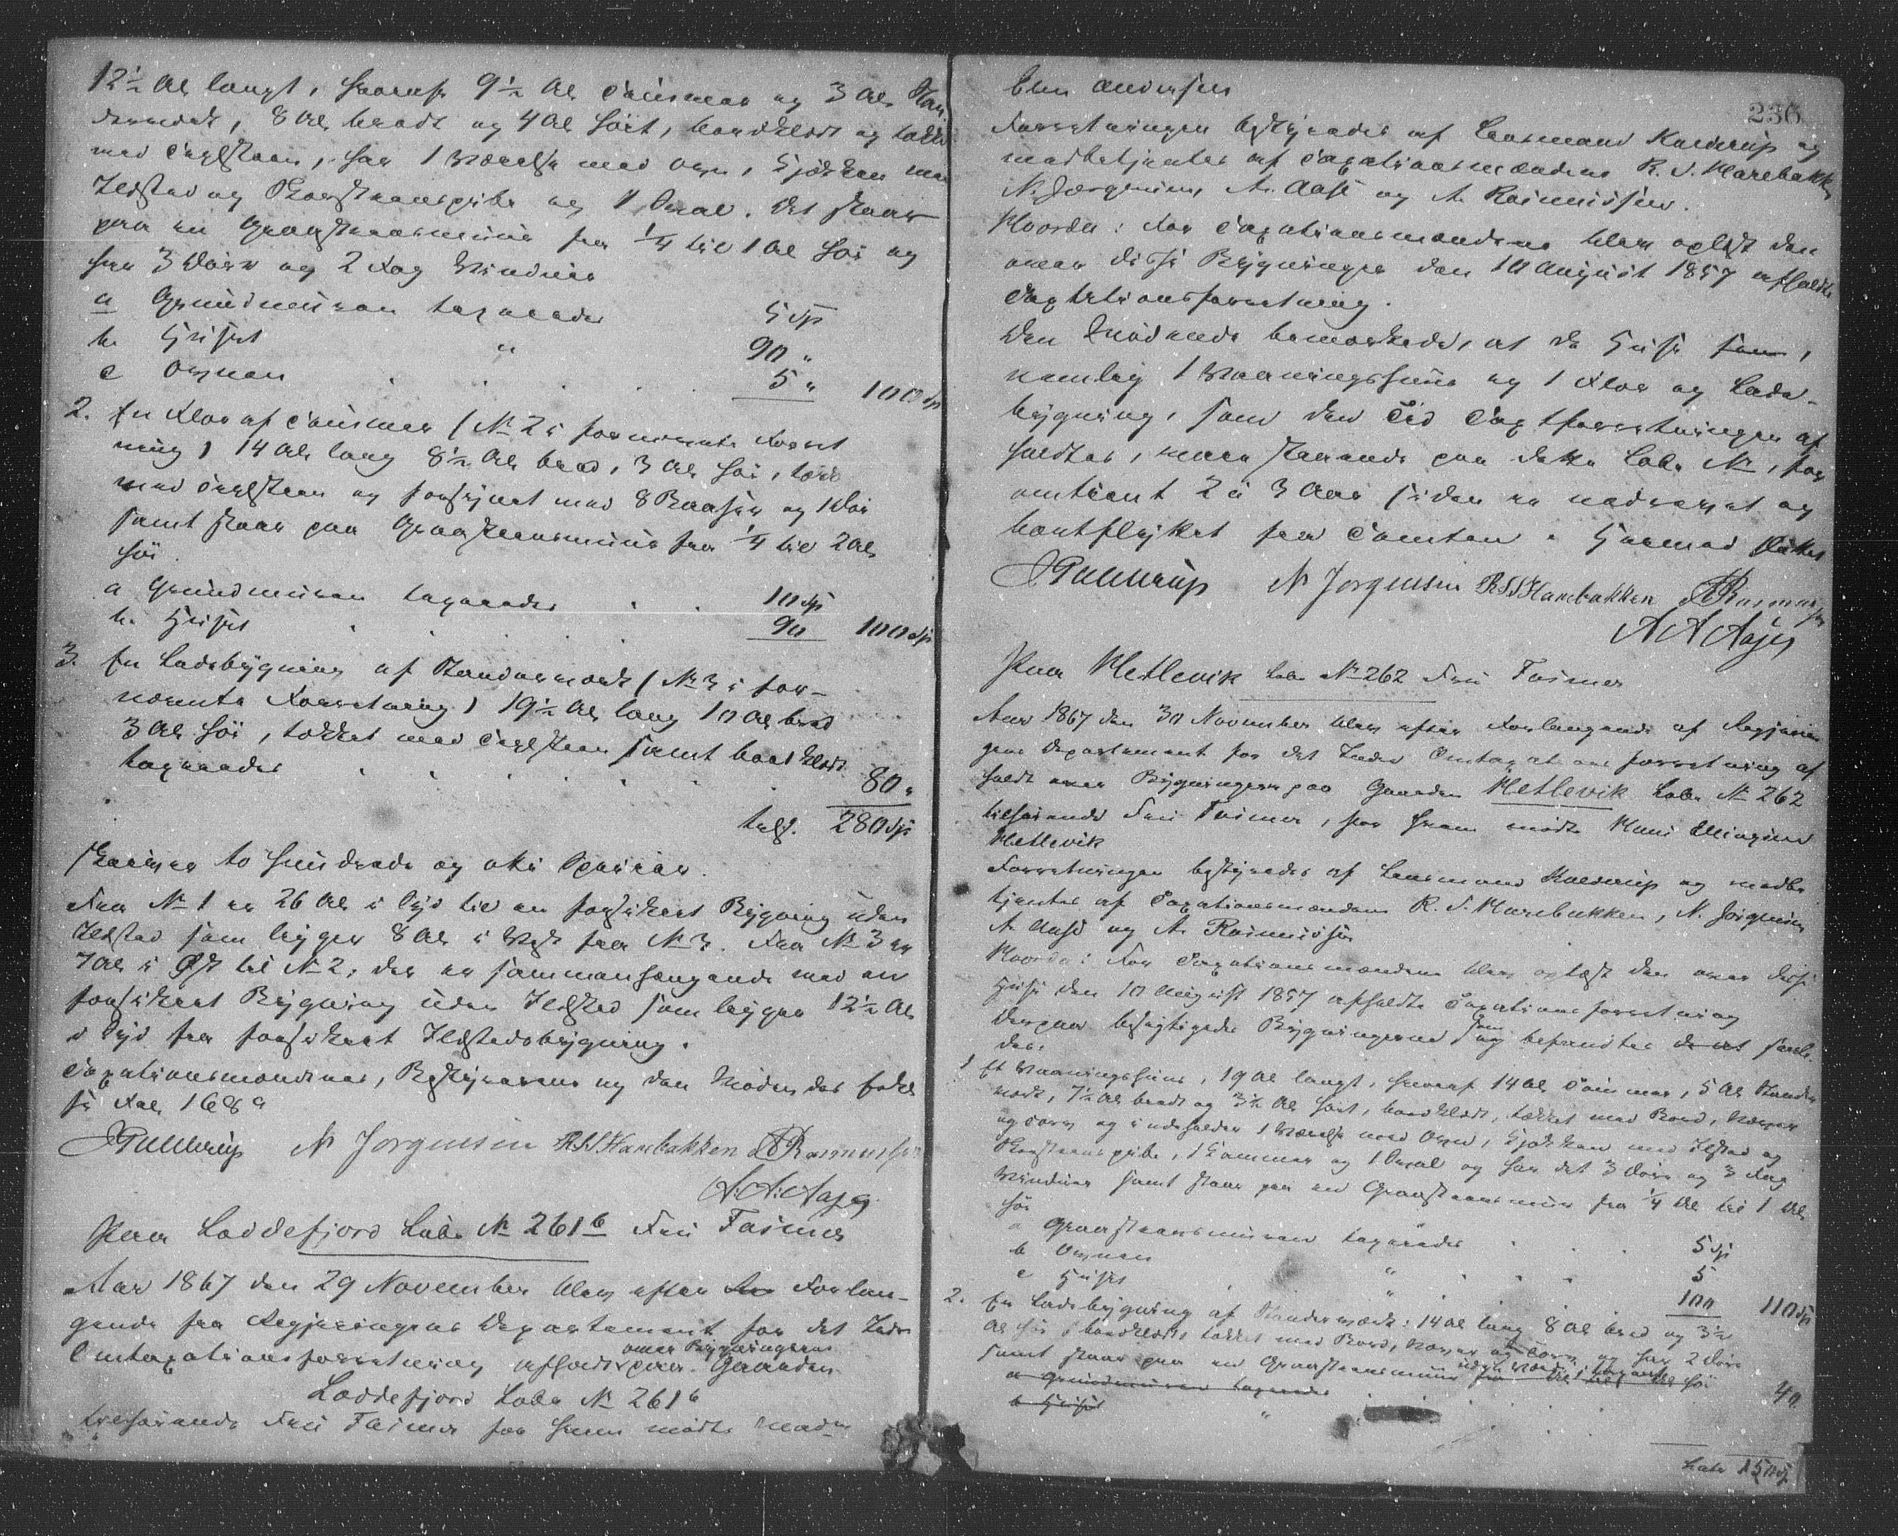 12½ Al langt, hvoraf 9½ Al Tømmer og 3 Al Stan
derværk, 8 Al bredt og 4 Al høit, bordklædt og takket
med Teglsteen, har 1 Værelse med Ovn, Kjøkken med
Ildsted og Skorsteenspibe og 1 Sval. Det staar
paa en Graasteensmuur fra ¼ til 1 Al høi og
har 3 Døre og 2 Fag Vinduer
a Grundmuren taxeredes 5 Sp
b. Huset " 90 "
c Ovnen 5 " 100 Sp
2. En Flor af Tømmer (N 2 i fornævnte Forret
ning) 14 Al lang 8½ Al bred, 3 Al høi, takt
med Teglsteen og forsynet med 8 Baaser og 1 Dør
samt staar paa Graasteensmuur fra ¼ til 2 Al
høi.
a Grundmuren taxeredes 10 Sp
b. Huset 90 100 Sp
3. En Ladebygning af Standerværk (N 3 i for-
nævnte Forretning) 19½ Al lang 10 Al bred
3 Al høi, takket med Teglsteen samt bordklædt
taxeredes 80 "
tils. 280 Sp
skriver to hundrede og otti Specier.
Fra N 1 er 26 Al i Syd til en forsikret Bygning uden
Ildsted som ligger 8 Al i Vest fra N 3. Fra N 3 er
7 Al i Øst til N 2, der er sammenhængende med en
forsikret Bygning uden Ildsted som ligger 12½ Al
i Syd fra forsikret Ildstedsbygning.
Taxationsmændenes, Bestyrerens og den Mødendes
se Fol 168
N Jørgensen RSS Harebakken A Rasmussen
A. A. Aase
Paa Loddefjord Løbe N 261b Fru Fasmer
Aar 1867 den 29 November blev efter Forlan-
gende fra Regjeringens Departement for det Indre
Omtaxationsforretning afholdt over Bygningerne paa Gaarden
Loddefjord Løbe N 261b
tilhørende Fru Fasmer for hvem mødte
236
Andersen
Forretningen bestyredes af Lensmand og
medbetjentes af Taxationsmændene R. S. Harebakken
N. Jørgensen, A. Aase og A. Rasmussen.
Hvorda: For Taxationsmændene blev oplæst den
over disse Bygninger den 10 August 1857 afholdte
Taxtationsforretning.
Den Mødende bemærkede, at de Huse som,
nemlig 1 Vaaningshuus og 1 Flor og Lade-
bygning, som den Tid Taxtforretningen af
holdtes, vare staaende paa dette Løbe N, for
omtrent 2 a 3 Aar siden er nedrevet og
bortflyttet fra Tomten. Hermed sluttet
N Jørgensen RSS Harebakken A Rasmus
sen
A A Aase
Paa Hetlevik Løbe N 262 Fru Fasmer
Aar 1867 den 30 November blev efter Forlangende af Regjerin
gens Departement for det Indre Omtaxationsforretning af
holdt over Bygningerne paa Gaarden Hetlevik Løbe N 262
tilhørende Fru Fasmer, for hvem mødte
Hetlevik
Forretningen bestyredes af Lensmand og medbe
tjentes af Taxationsmændene R. S. Harebakken, N. Jørgensen
A Aase og A. Rasmussen
Hvorda: For Taxationsmændene blev oplæst den over disse
Huse den 10 August 1857 afholdte Taxationsforretning
Derpaa besigtigedes Bygningerne som og befandtes
des.
1 Et Vaaningshuus, 19 Al langt, hvoraf 14 Al Tømmer, 5 Al Stander
værk, 7½ Al bredt og 3½ Al høit, bordklædt, takket med Bord, Næver
og Torv og indeholder 1 Værelse med Ovn, Kjøkken med Ildsted og
Skorsteenspibe, 1 Kammer og 1 Sval og har det 3 Døre og 3 Fag
Vinduer samt staar paa en Graasteensmuur fra ¼ Al til 1 Al
høi
a Graasteensmuren taxeredes 5 Sp
b Ovnen " 5
c Huset " 100 110 Sp
2. En Ladebygning af Standerværk: 14 Al lang 8 Al bred og 3½
Al høi, bordklædt takket med Bord, Næver og Torv og har 2 Døre
samt staar paa en Graasteensmuur høi
a Grundmuren taxeredes 40
b Huset "
Late 150 Sp